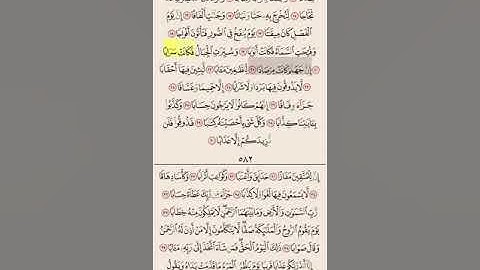 ثَجَّاجًا لِّنُخْرِجَ بِهِۦ حَبًّا وَنَبَاتًا وَجَنَّٰتٍ أَلْفَافًا إِنَّ يَوْمَ
ٱلْفَصْلِ كَانَ مِيقَٰتًا يَوْمَ يُنفَخُ فِى ٱلصُّورِ فَتَأْتُونَ أَفْوَاجًا
وَفُتِحَتِ ٱلسَّمَآءُ فَكَانَتْ أَبْوَٰبًا وَسُيِّرَتِ ٱلْجِبَالُ فَكَانَتْ سَرَابًا
إِنَّ جَهَنَّمَ كَانَتْ مِرْصَادًا لِّلطَّٰغِينَ مَـَٔابًا لَّٰبِثِينَ فِيهَآ أَحْقَابًا
لَّا يَذُوقُونَ فِيهَا بَرْدًا وَلَا شَرَابًا إِلَّا حَمِيمًا وَغَسَّاقًا
جَزَآءً وِفَاقًا إِنَّهُمْ كَانُوا۟ لَا يَرْجُونَ حِسَابًا وَكَذَّبُوا۟
بِـَٔايَٰتِنَا كِذَّابًا وَكُلَّ شَىْءٍ أَحْصَيْنَٰهُ كِتَٰبًا فَذُوقُوا۟ فَلَن
نَّزِيدَكُمْ إِلَّا عَذَابًا
٥٨٢
إِنَّ لِلْمُتَّقِينَ مَفَازًا حَدَآئِقَ وَأَعْنَٰبًا وَكَوَاعِبَ أَتْرَابًا وَكَأْسًا دِهَاقًا
لَّا يَسْمَعُونَ فِيهَا لَغْوًا وَلَا كِذَّٰبًا جَزَآءً مِّن رَّبِّكَ عَطَآءً حِسَابًا
رَّبِّ ٱلسَّمَٰوَٰتِ وَٱلْأَرْضِ وَمَا بَيْنَهُمَا ٱلرَّحْمَٰنِ لَا يَمْلِكُونَ مِنْهُ خِطَابًا
يَوْمَ يَقُومُ ٱلرُّوحُ وَٱلْمَلَٰٓئِكَةُ صَفًّا لَّا يَتَكَلَّمُونَ إِلَّا مَنْ أَذِنَ لَهُ ٱلرَّحْمَٰنُ
وَقَالَ صَوَابًا ذَٰلِكَ ٱلْيَوْمُ ٱلْحَقُّ فَمَن شَآءَ ٱتَّخَذَ إِلَىٰ رَبِّهِۦ مَـَٔابًا
إِنَّآ أَنذَرْنَٰكُمْ عَذَابًا قَرِيبًا يَوْمَ يَنظُرُ ٱلْمَرْءُ مَا قَدَّمَتْ يَدَاهُ وَيَقُولُ